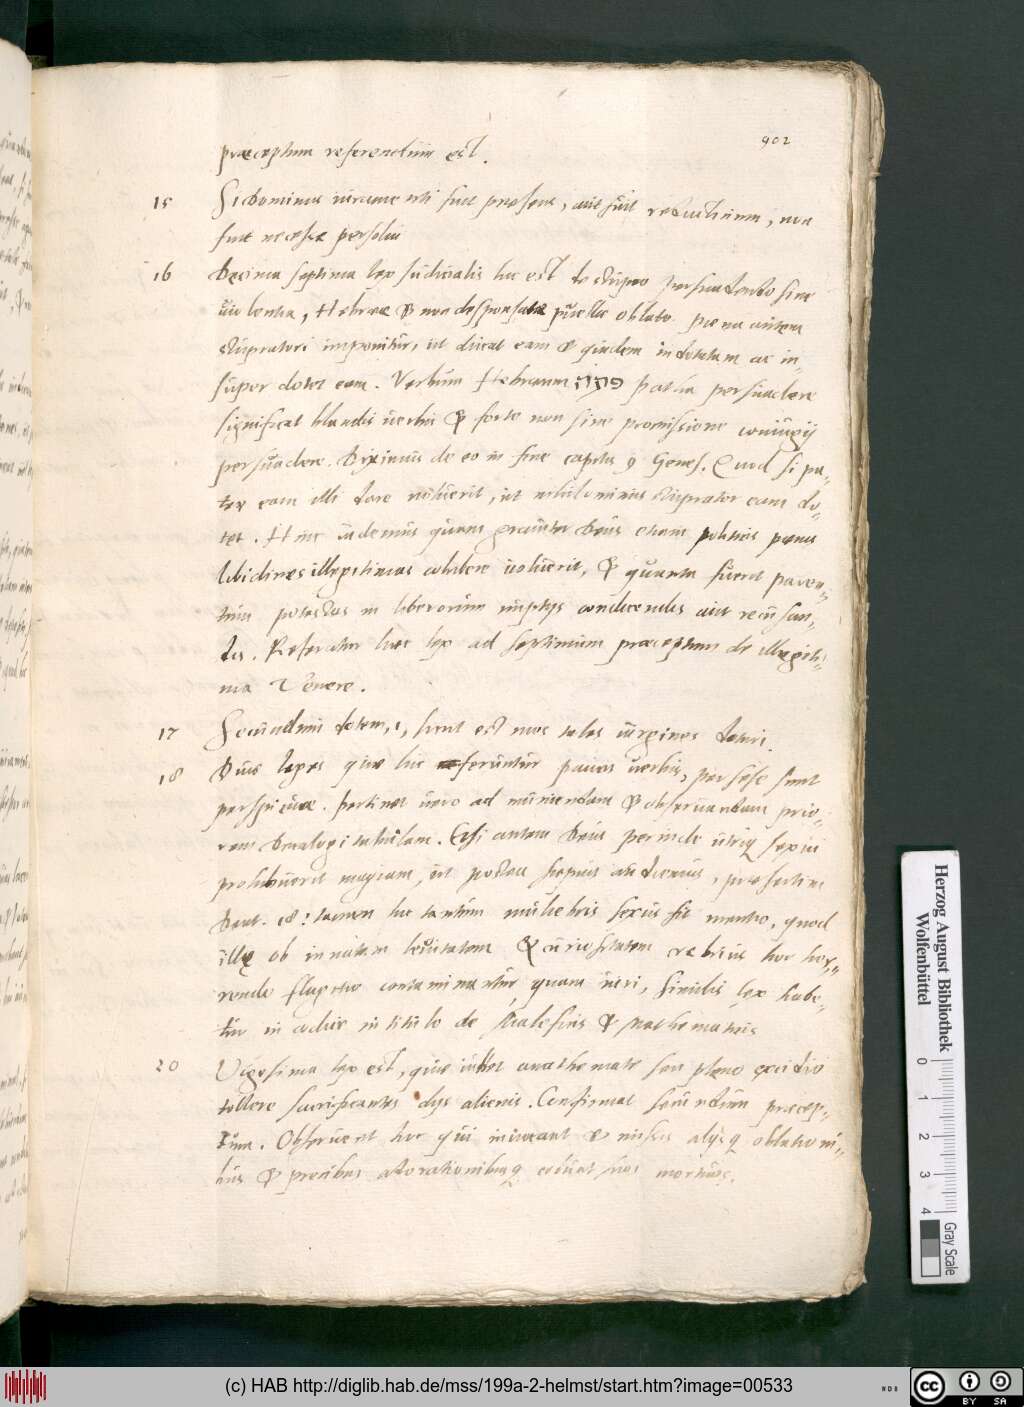 902
præceptum referendum est.
15 Si Dominus iumenti fuit præsens, aut fuit conductitium, non
sunt necesse persolui
16 Decima septima lex Iudicialis hic est de stupro persuadendo sine
uiolentia, Hebrææ & non desponsatæ puellæ oblato. pœna autem
stupratori imponitur, ut ducat eam & quidem indotatam ac in„
super dotet eam. Verbum Hebræum פתה patha persuadere
significat blandis uerbis & forte non sine promissione coniugij
persuadere. Diximus de eo in fine capitis 9 Genes. Quod si pa„
ter eam illi dare noluerit, ut nihilominus stuprator eam do„
tet. Hinc uidemus quam grauiter Deus etiam politicis pœnis
libidines illegitimas cohibere uoluerit, & quanta fuerit paren„
tum potestas in liberorum nuptijs conducendis aut recusan„
dis. Refertur hæc lex ad septimum præceptum de illegiti„
ma Venere.
17 Secundum dotem, i, sicut est mos tales uirgines dotari.
18 Duæ leges quæ hic feruntur paucis uerbis, per sese sunt
perspicuæ. pertinet uero ad muniendam & obseruandam prio„
rem Decalogi tabulam. Etsi autem Deus perinde utriq sexui
prohibuerit magiam, ut postea sæpius audiemus, præsertim
Deut. 18: tamen hic tantum muliebris sexus fit mentio, quod
illę ob innatam leuitatem & curiositatem crebrius hoc hor„
rendo flagitio contaminantur quam uiri, Similis lex habe„
tur in codice in titulo de Maleficis & Mathematicis
20 Vigesima lex est, quæ iubet anathemate seu pleno excidio
tollere sacrificantes dijs alienis. Confirmat secundum præcep„
tum. Obseruent hoc qui inuocant & missis alijsq oblationi„
bus & precibus adorationibusq colunt suos mortuos.
Herzog August Bibliothek
Wolfenbüttel
0 1 2 3 4
Gray Scale
(c) HAB http://diglib.hab.de/mss/199a-2-helmst/start.htm?image=00533
cc BY SA